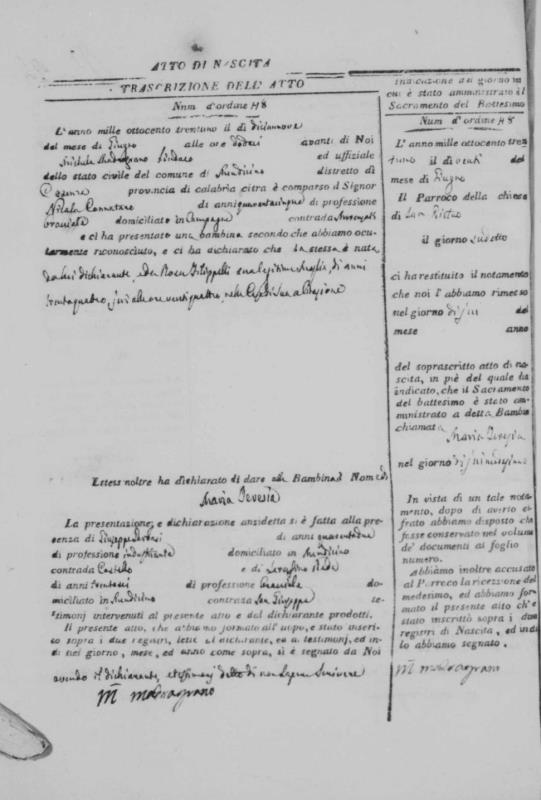 ATTO DI NASCITA
TRASCRIZIONE DELL' ATTO
Num d'ordine 48
L'anno mille ottocento trentuno il dì diciannove
del mese di Giugno alle ore dodeci avanti di Noi
Michele Sindaco ed uffiziale
dello stato civile del comune di distretto di
Cosenza provincia di calabria citra è comparso il Signor
Nicola di anni quarantacinque di professione
domiciliato in Campagna contrada
e ci ha presentato una bambina secondo che abbiamo ocu-
larmente riconosciuto, e ci ha dichiarato che la stessa è nata
da lui dichiarante, e da Rosa Filippelli sua legitima moglie, di anni
trentaquattro, jeri alle ore ventiquattro, nella Casa di sua abitazione
Lstess'inoltre ha dichiarato di dare alla Bambina il Nome di
Maria Teresia
La presentazione, e dichiarazione anzidetta si è fatta alla pre-
senza di Giuseppe di anni quarantadue
di professione industriante domiciliato in
contrada Castello e di Serafino
di anni di professione do-
miciliato in contrada San Giuseppe te-
stimonj intervenuti al presente atto e dal dichiarante prodotti.
Il presente atto, che abbiamo formato all'uopo, è stato inseri-
to sopra i due registri, letto al dichiarante, ed a testimonj, ed in-
di nel giorno, mese, ed anno come sopra, si è segnato da Noi
avendo il dichiarante, e testimonj detto di non sapere scrivere
Indicazione del giorno in
cui è stato amministrato il
Sacramento del Battesimo
Num d'ordine 48
L'anno mille ottocento tren
tuno il dì venti del
mese di Giugno
Il Parroco della chiesa
di San Pietro
il giorno sudetto
ci ha restituito il notamento
che noi l'abbiamo rimesso
nel giorno del
mese anno
del soprascritto atto di na-
scita, in piè del quale ha
indicato, che il Sacramento
del battesimo è stato am-
ministrato a detta Bambina
chiamata
Maria Teresia
nel giorno
In vista di un tale nota-
mento, dopo di averlo ci-
frato abbiamo disposto che
fosse conservato nel volume
de' documenti al foglio
numero.
Abbiamo inoltre accusato
al Parroco la ricezione del
medesimo, ed abbiamo for-
mato il presente atto ch'è
stato inscritto sopra i due
registri di Nascita, ed indi
lo abbiamo segnato.